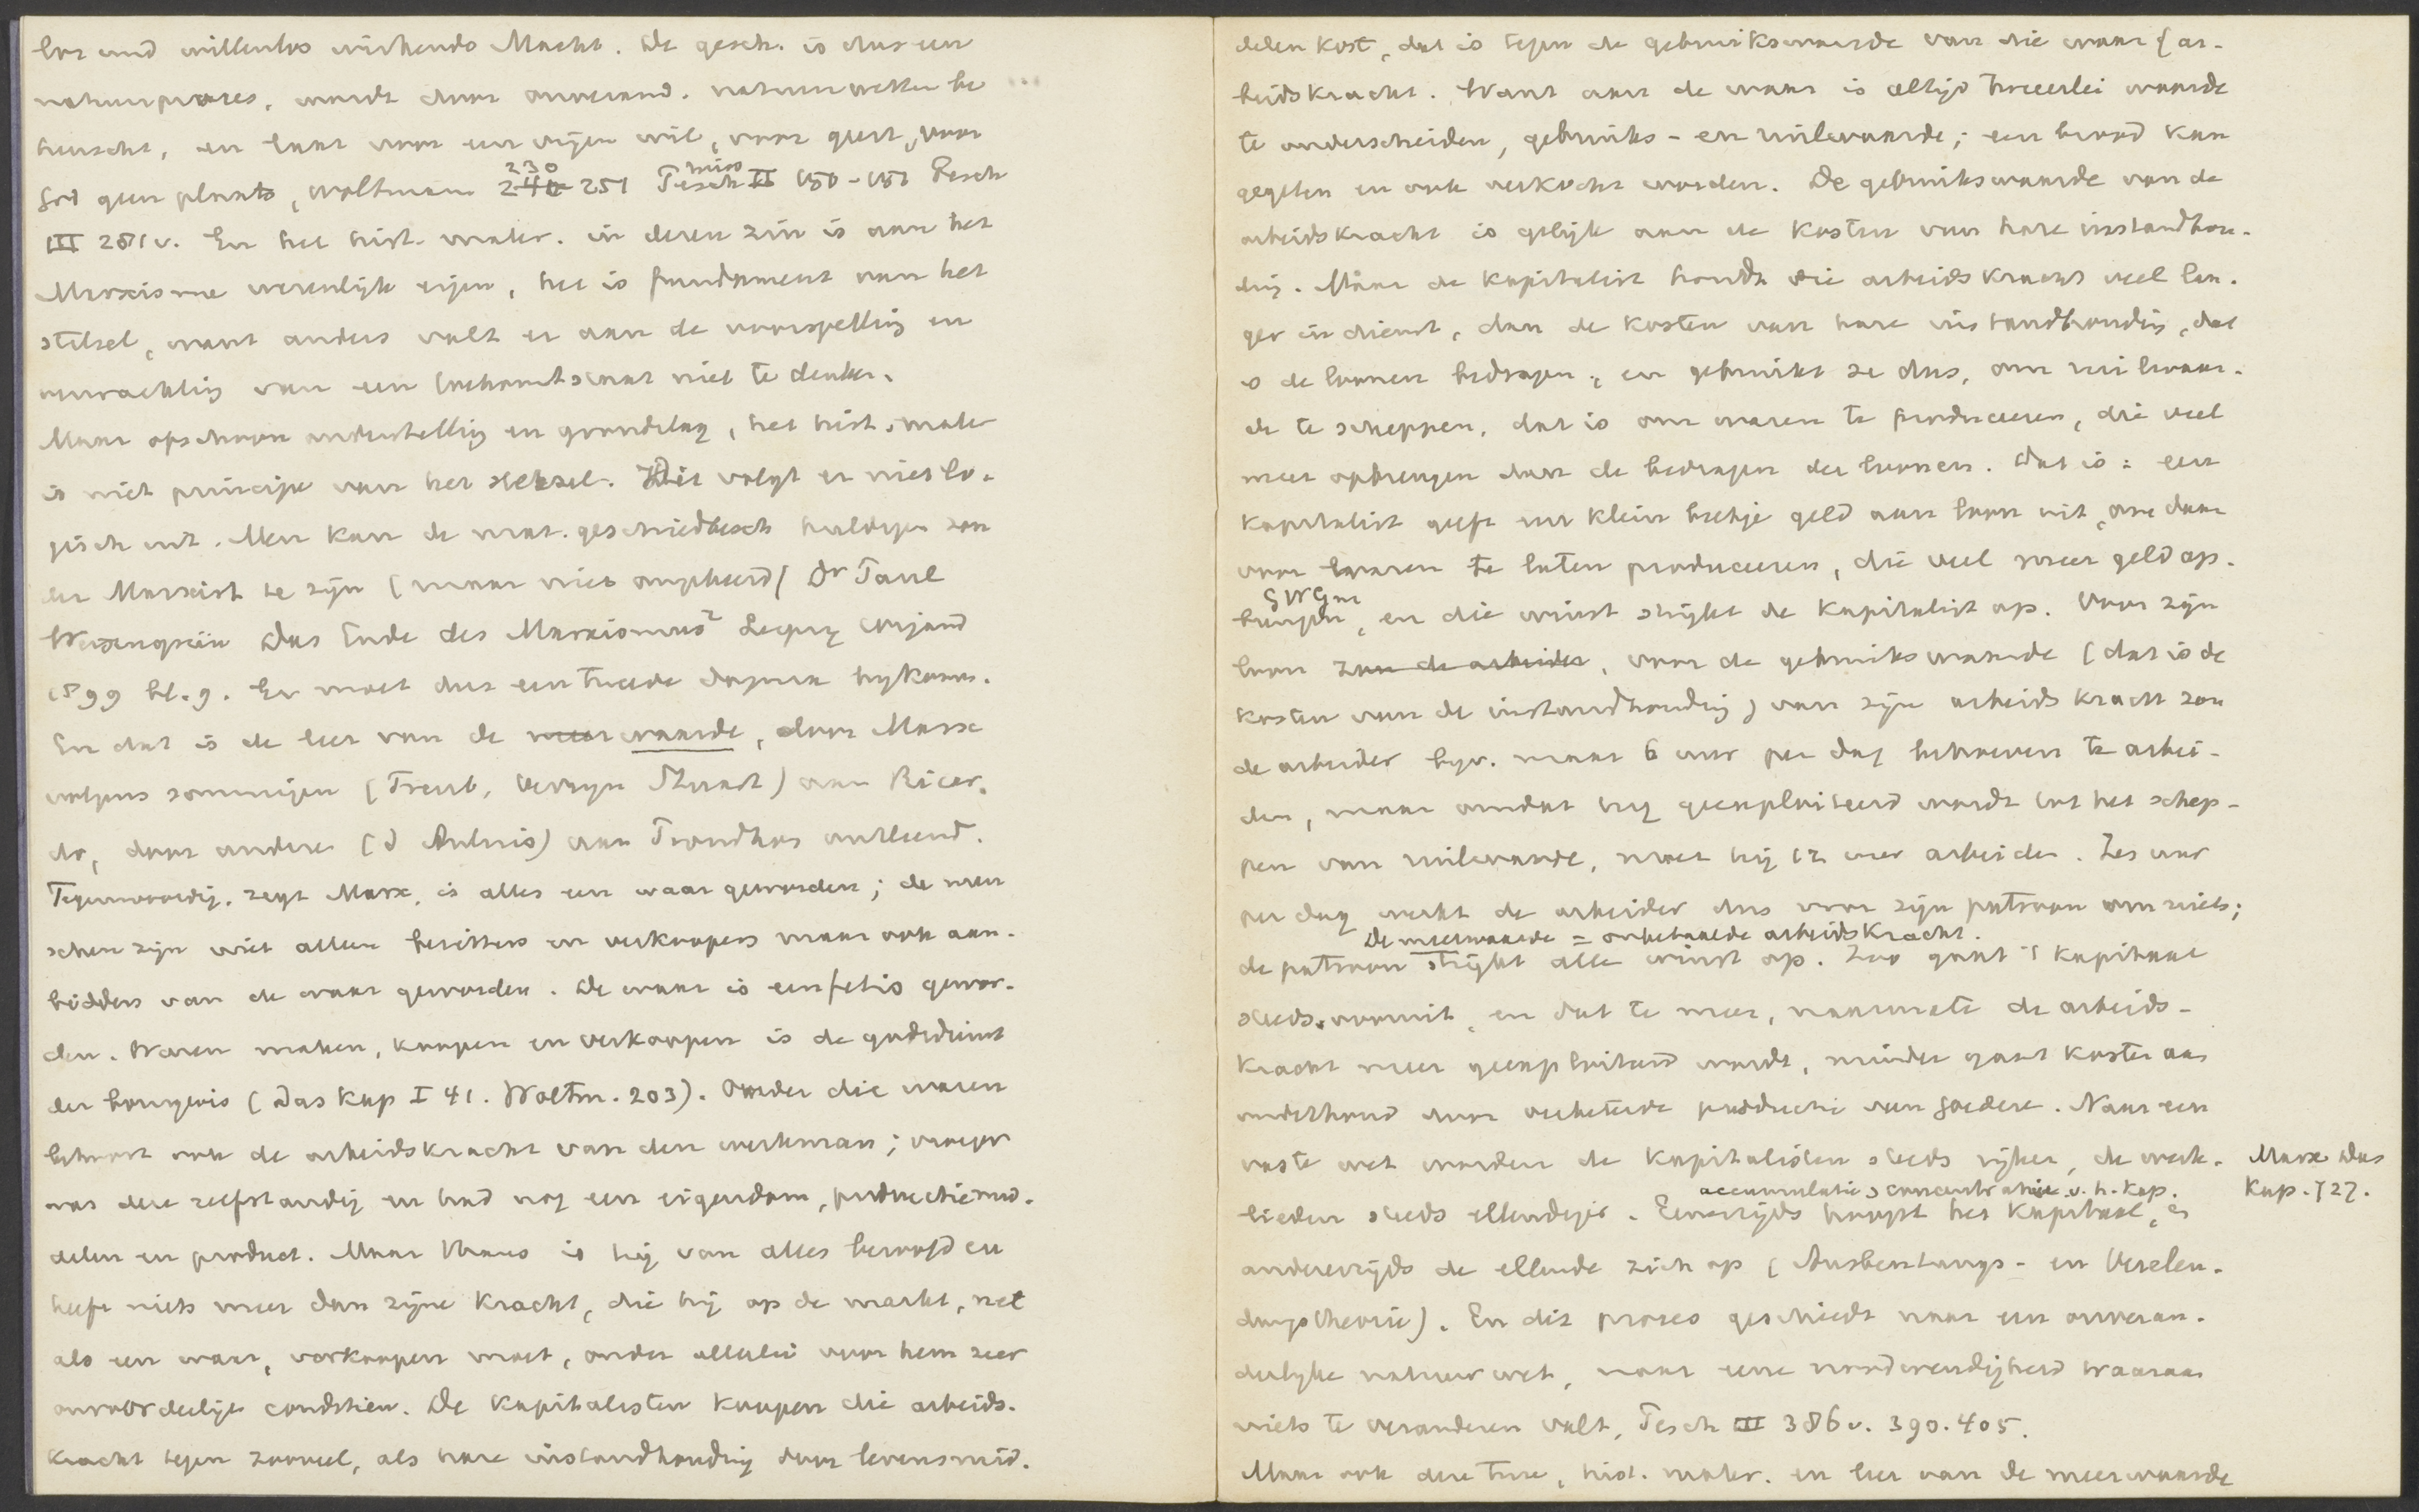 los und willenlos wirkende Macht. De gesch. is dus een
natuurproces, wordt door onverand. natuurwetten be
heerscht, en laat voor een vrijen wil, voor geest, voor
God geen plaats, Woltmann 230 251 Pesch II 150-151 Pesch
III 281 v. En het hist. mater. in dezen zin is aan het
Marxisme wezenlijk eigen, het is fundament van het
stelsel, want anders valt er aan de voorspelling en
verwachting van een toekomtstaat niet te denken.
Maar ofschoon onderstelling en grondslag, het hist. mater
is niet principe van het stelsel. Dit volgt er niet lo-
gisch uit. Men kan de mat. geschiedbesch huldigen zon
der Marxist te zijn (maar niet omgekeerd) Dr Paul
Weisengrün Das Ende des Marxismus² Leipzig Wigand
1899 bl. 9. Er moet dus een tweede dogma bijkomen.
En dat is de leer van de meerwaarde, door Marx
volgens sommigen (Treub, Verryn Stuart) aan Ricar-
do, door andere (d'Aulnis) aan Proudhon ontleend.
Tegenwoordig, zegt Marx, is alles een waar geworden; de men
schen zijn niet alleen bezitters en verkoopers maar ook aan-
bidders van de waar geworden. De waar is een fetis gewor-
den. Waren maken, koopen en verkoopen is de godsdienst
der bourgeois (Das Kap I 41. Woltm. 203). Onder die waren
behoort ook de arbeidskracht van den werkman; vroeger
was deze zelfstandig en had nog een eigendom, productiemid-
delen en product. Maar thans is hij van alles beroofd en
heeft niets meer dan zijne kracht, die hij op de markt, net
als een waar, verkoopen moet, onder allerlei voor hem zeer
onvoordeelige conditien. De kapitalisten koopen die arbeids-
kracht tegen zooveel, als hare instandhouding door levensmid-
delen kost, dat is tegen de gebruikswaarde van die waar (ar-
beidskracht. Want aan de waar is altijd tweeerlei waarde
te onderscheiden, gebruiks- en ruilwaarde; een brood kan
gegeten en ook verkocht worden. De gebruikswaarde van de
arbeidskracht is gelijk aan de kosten van hare instandhou-
ding. Maar de kapitalist houdt die arbeidskracht veel lan-
ger in dienst, dan de kosten van hare instandhouding, dat
is de loonen bedragen, en gebruikt ze dus, om ruilwaar-
de te scheppen, dat is om waren te produceeren, die veel
meer opbrengen dan de bedragen der loonen. Dat is: een
kapitalist geeft een klein beetje geld aan loon uit, om daar
voor waren te laten produceeren, die veel meer geld op-
GWGm
brengen, en die winst strijkt de kapitalist op. Voor zijn
loon zou de arbeider, voor de gebruikswaarde (dat is de
kosten van de instandhouding) van zijn arbeidskracht zou
de arbeider bijv. maar 6 uur per dag behoeven te arbei-
den, maar omdat hij geexploiteerd wordt tot het schep-
pen van ruilwaarde, moet hij 12 uur arbeiden. Zes uur
per dag werkt de arbeider dus voor zijn patroon om niets;
De meerwaarde = onbetaalde arbeidskracht.
de patroon strijkt alle winst op. Zoo gaat 't kapitaal
steeds vooruit, en dat te meer, naarmate de arbeids-
kracht meer geexploiteerd wordt, minder gaat kosten aan
onderhoud door verbeterde productie van goederen. Naar een
vaste wet worden de kapitalisten steeds rijker, de werk-
Marx Das
Kap. 727.
accumulatie, concentratie v. h. kap.
lieden steeds ellendiger. Eenerzijds hoopt het kapitaal, en
anderzijds de ellende zich op (Ausbeutungs- en Verelen-
dungstheorie). En dit proces geschiedt naar een onveran-
derlijke natuurwet, naar eene noodwendigheid waaraan
niets te veranderen valt, Pesch III 386 v. 390. 405.
Maar ook deze twee, hist. mater. en leer van de meerwaarde